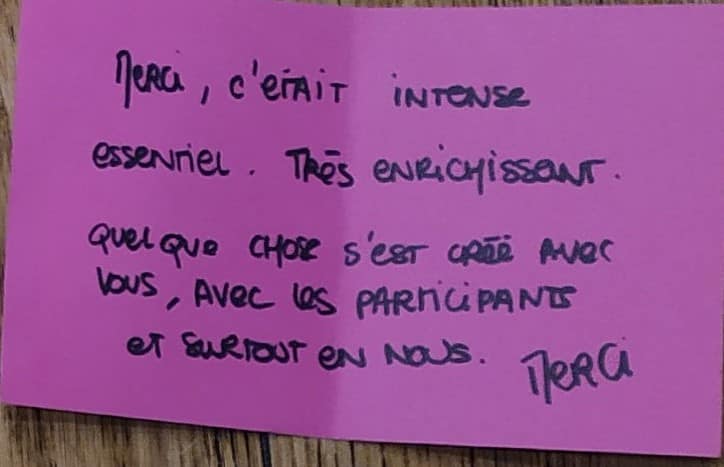 Merci, c'était intense
essentiel. Très enrichissant.
Quelque chose s'est créé avec
vous, avec les participants
et surtout en nous. Merci